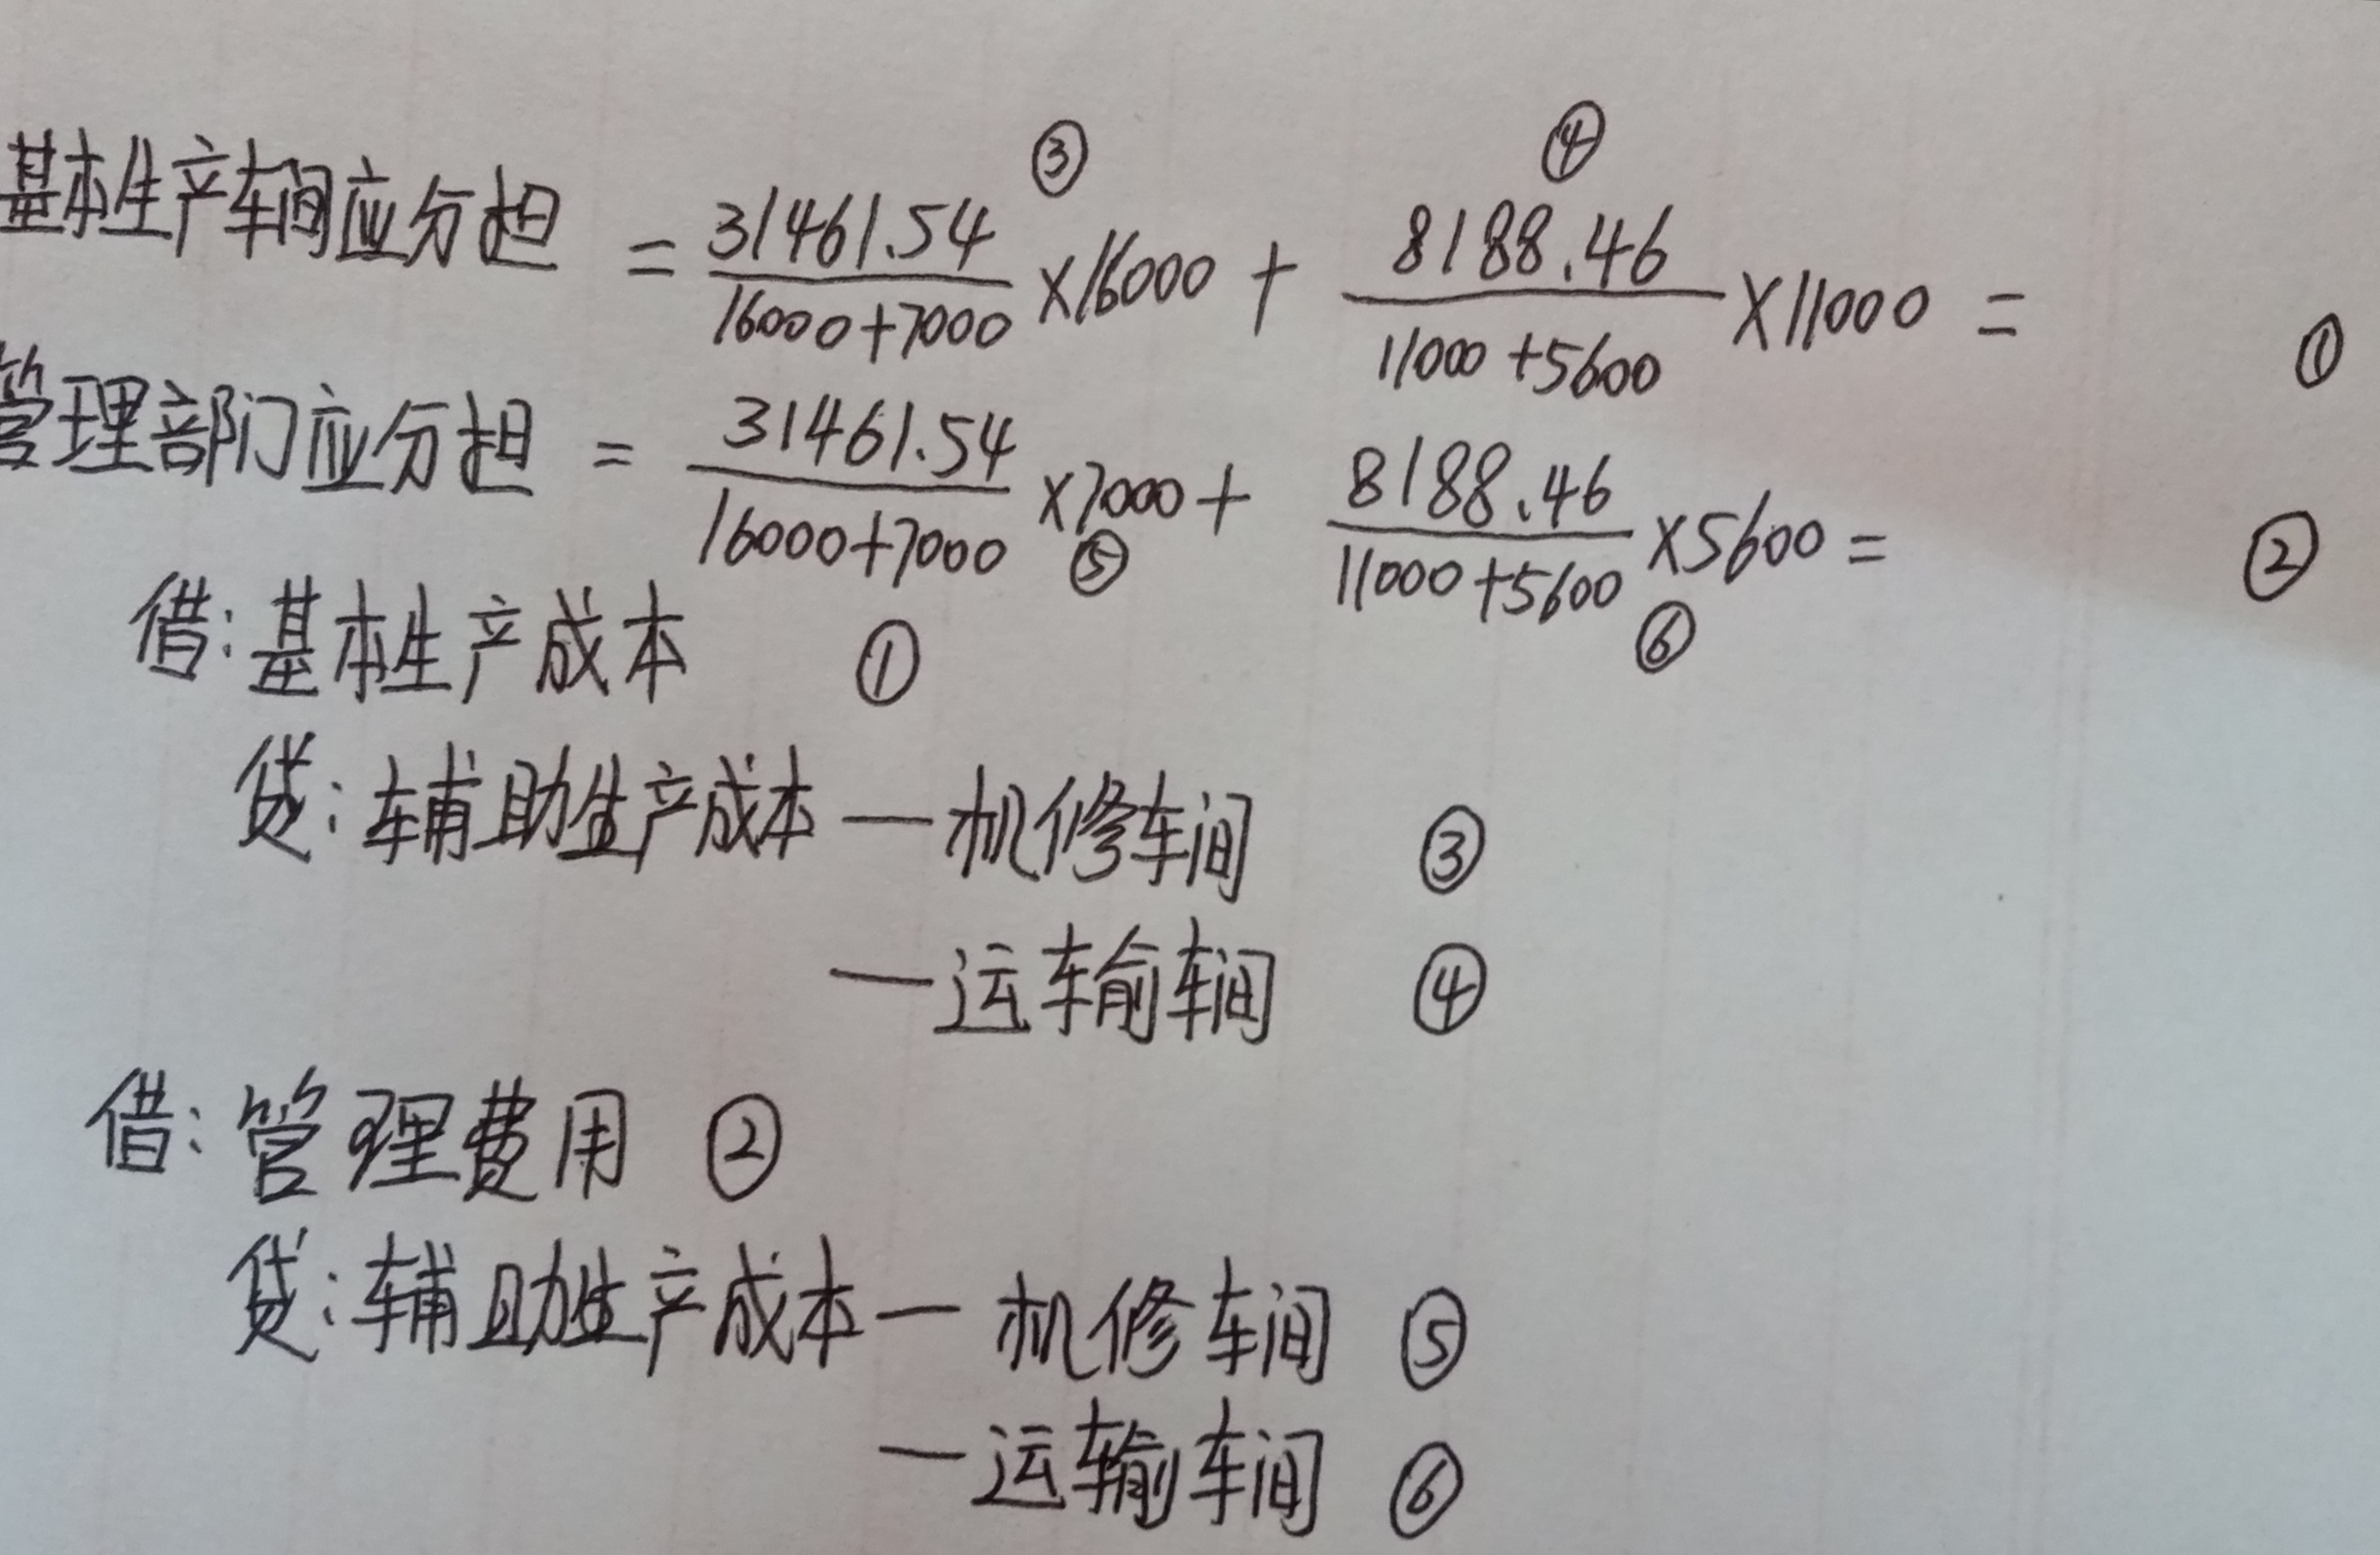 ③ ④
基本生产车间应分担 = 31461.54/16000+7000 ×16000 + 8188.46/11000+5600 ×11000 = ①
管理部门应分担 = 31461.54/16000+7000 ×7000 + 8188.46/11000+5600 ×5600 = ②
⑤ ⑥
借:基本生产成本 ①
贷:辅助生产成本一机修车间 ③
一运输车间 ④
借:管理费用 ②
贷:辅助生产成本一机修车间 ⑤
一运输车间 ⑥